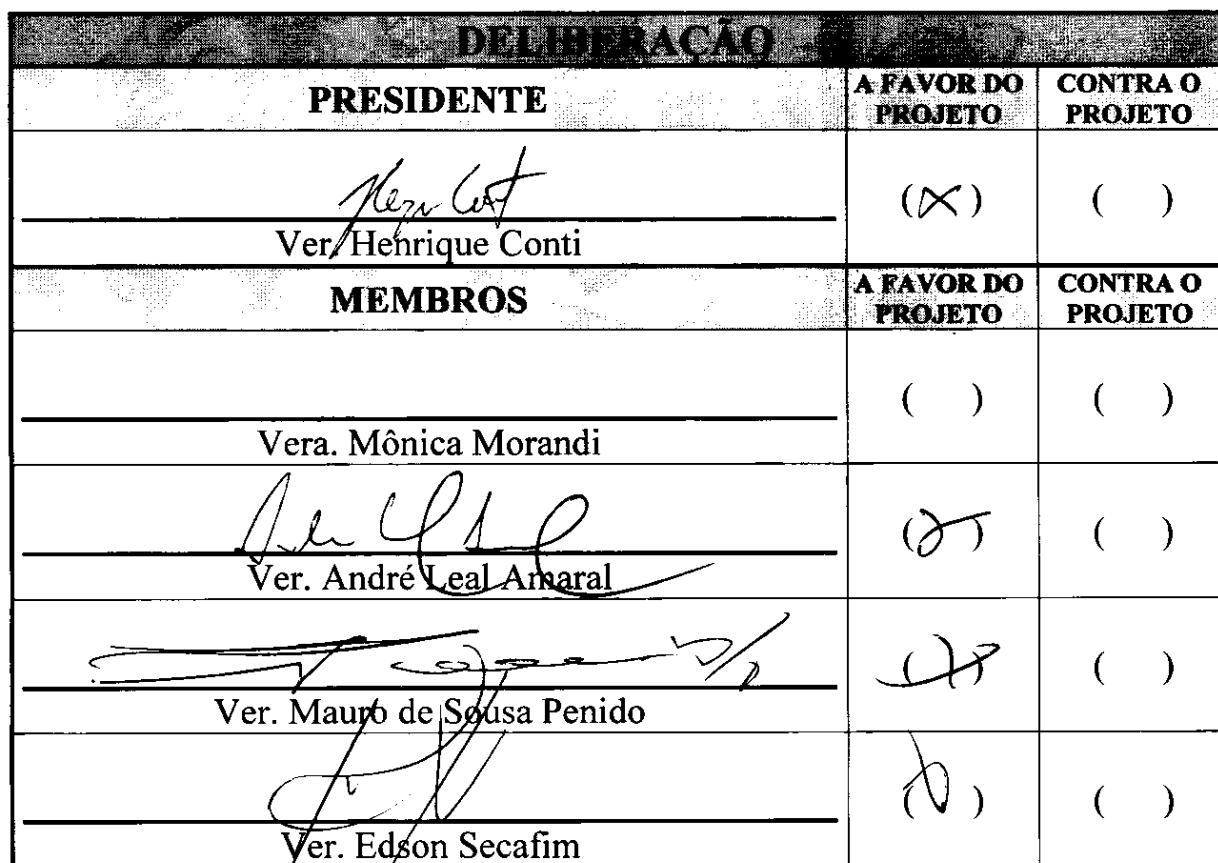 DELIBERAÇÃO
PRESIDENTE
A FAVOR DO PROJETO
CONTRA O PROJETO
(X)
( )
Ver. Henrique Conti
MEMBROS
A FAVOR DO PROJETO
CONTRA O PROJETO
( )
( )
Vera. Mônica Morandi
(X)
( )
Ver. André Leal Amaral
(X)
( )
Ver. Mauro de Sousa Penido
( )
Ver. Edson Secafim